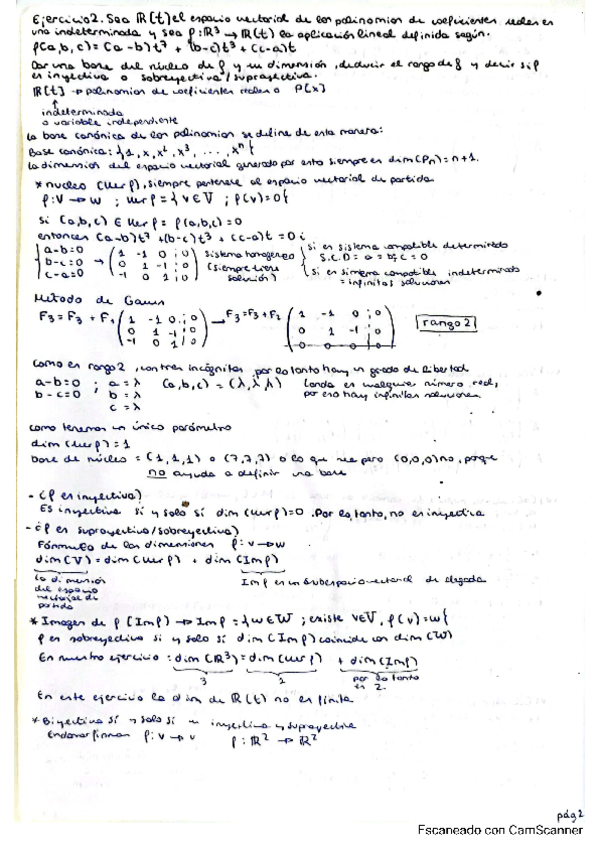 Ejercicio 2. Sea ℝ[t] el espacio vectorial de los polinomios de coeficientes reales en
una indeterminada y sea f: ℝ³ → ℝ(t) la aplicación lineal definida según.
f(a, b, c) = (a-b)t⁷ + (b-c)t³ + (c-a)t
Dar una base del núcleo de f y su dimensión, deducir el rango de f y decir si f
es inyectiva o sobreyectiva/suprayectiva.
ℝ[t] → polinomios de coeficientes reales o P[x]
indeterminada
o variable independiente
La base canónica de los polinomios se define de esta manera:
Base canónica: {1, x, x², x³, ..., xⁿ}
La dimensión del espacio vectorial generado por esto siempre es dim(Pn) = n+1.
* núcleo (Ker f), siempre pertenece al espacio vectorial de partida
f: V → W ; Ker f = { v ∈ V ; f(v) = 0 {
Si (a, b, c) ∈ Ker f = f(a, b, c) = 0
entonces (a-b)t⁷ + (b-c)t³ + (c-a)t = 0 ;
a-b=0 ( 1 -1 0 ¦ 0 ) sistema homogéneo si es sistema compatible determinado
b-c=0 → ( 0 1 -1 ¦ 0 ) (siempre tiene S.C.D = a = b; c = 0
c-a=0 ( -1 0 1 ¦ 0 ) solución) si es sistema compatible indeterminado
= infinitas soluciones
Método de Gauss
F3 = F3 + F1 ( 1 -1 0 ¦ 0 ) → F3 = F3 + F2 ( 1 -1 0 ¦ 0 )
( 0 1 -1 ¦ 0 ) ( 0 1 -1 ¦ 0 ) rango 2
( -1 0 1 ¦ 0 ) ( 0 0 0 ¦ 0 )
como es rango 2, con tres incógnitas por lo tanto hay un grado de libertad
a-b=0 ; a = λ (a, b, c) = (λ, λ, λ) Landa es cualquier número real,
b-c=0 b = λ por eso hay infinitas soluciones
c = λ
como tenemos un único parámetro
dim (Ker f) = 1
base de núcleo = (1, 1, 1) o (7, 7, 7) o lo que sea pero (0,0,0) no, porque
no ayuda a definir una base
- ¿f es inyectiva?
Es inyectiva si y solo si dim (Ker f) = 0. Por lo tanto, no es inyectiva
- ¿f es suprayectiva/sobreyectiva?
Fórmula de las dimensiones f: V → W
dim(V) = dim (Ker f) + dim (Im f)
la dimensión Im f es un subespacio vectorial de llegada
del espacio
vectorial de
partida
* Imagen de f (Im f) → Im f = { w ∈ W ; existe v ∈ V, f(v) = w {
f es sobreyectiva si y solo si dim (Im f) coincide con dim (W)
En nuestro ejercicio: dim (ℝ³) = dim (Ker f) + dim (Im f)
3 1 por lo tanto
es 2.
En este ejercicio la dim de ℝ(t) no es finita
* Biyectiva si y solo si es inyectiva y suprayectiva
Endomorfismo f: V → V f: ℝ² → ℝ²
pág 2
Escaneado con CamScanner